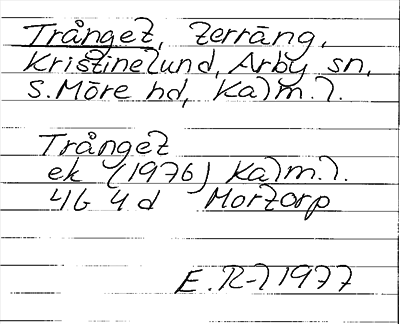 Trånget, terräng,
Kristinelund, Arby sn,
S. Möre hd, Kalm. l.
Trånget
ek (1976) Kalm. l.
4G 4d Mortorp
E. R-l 1977